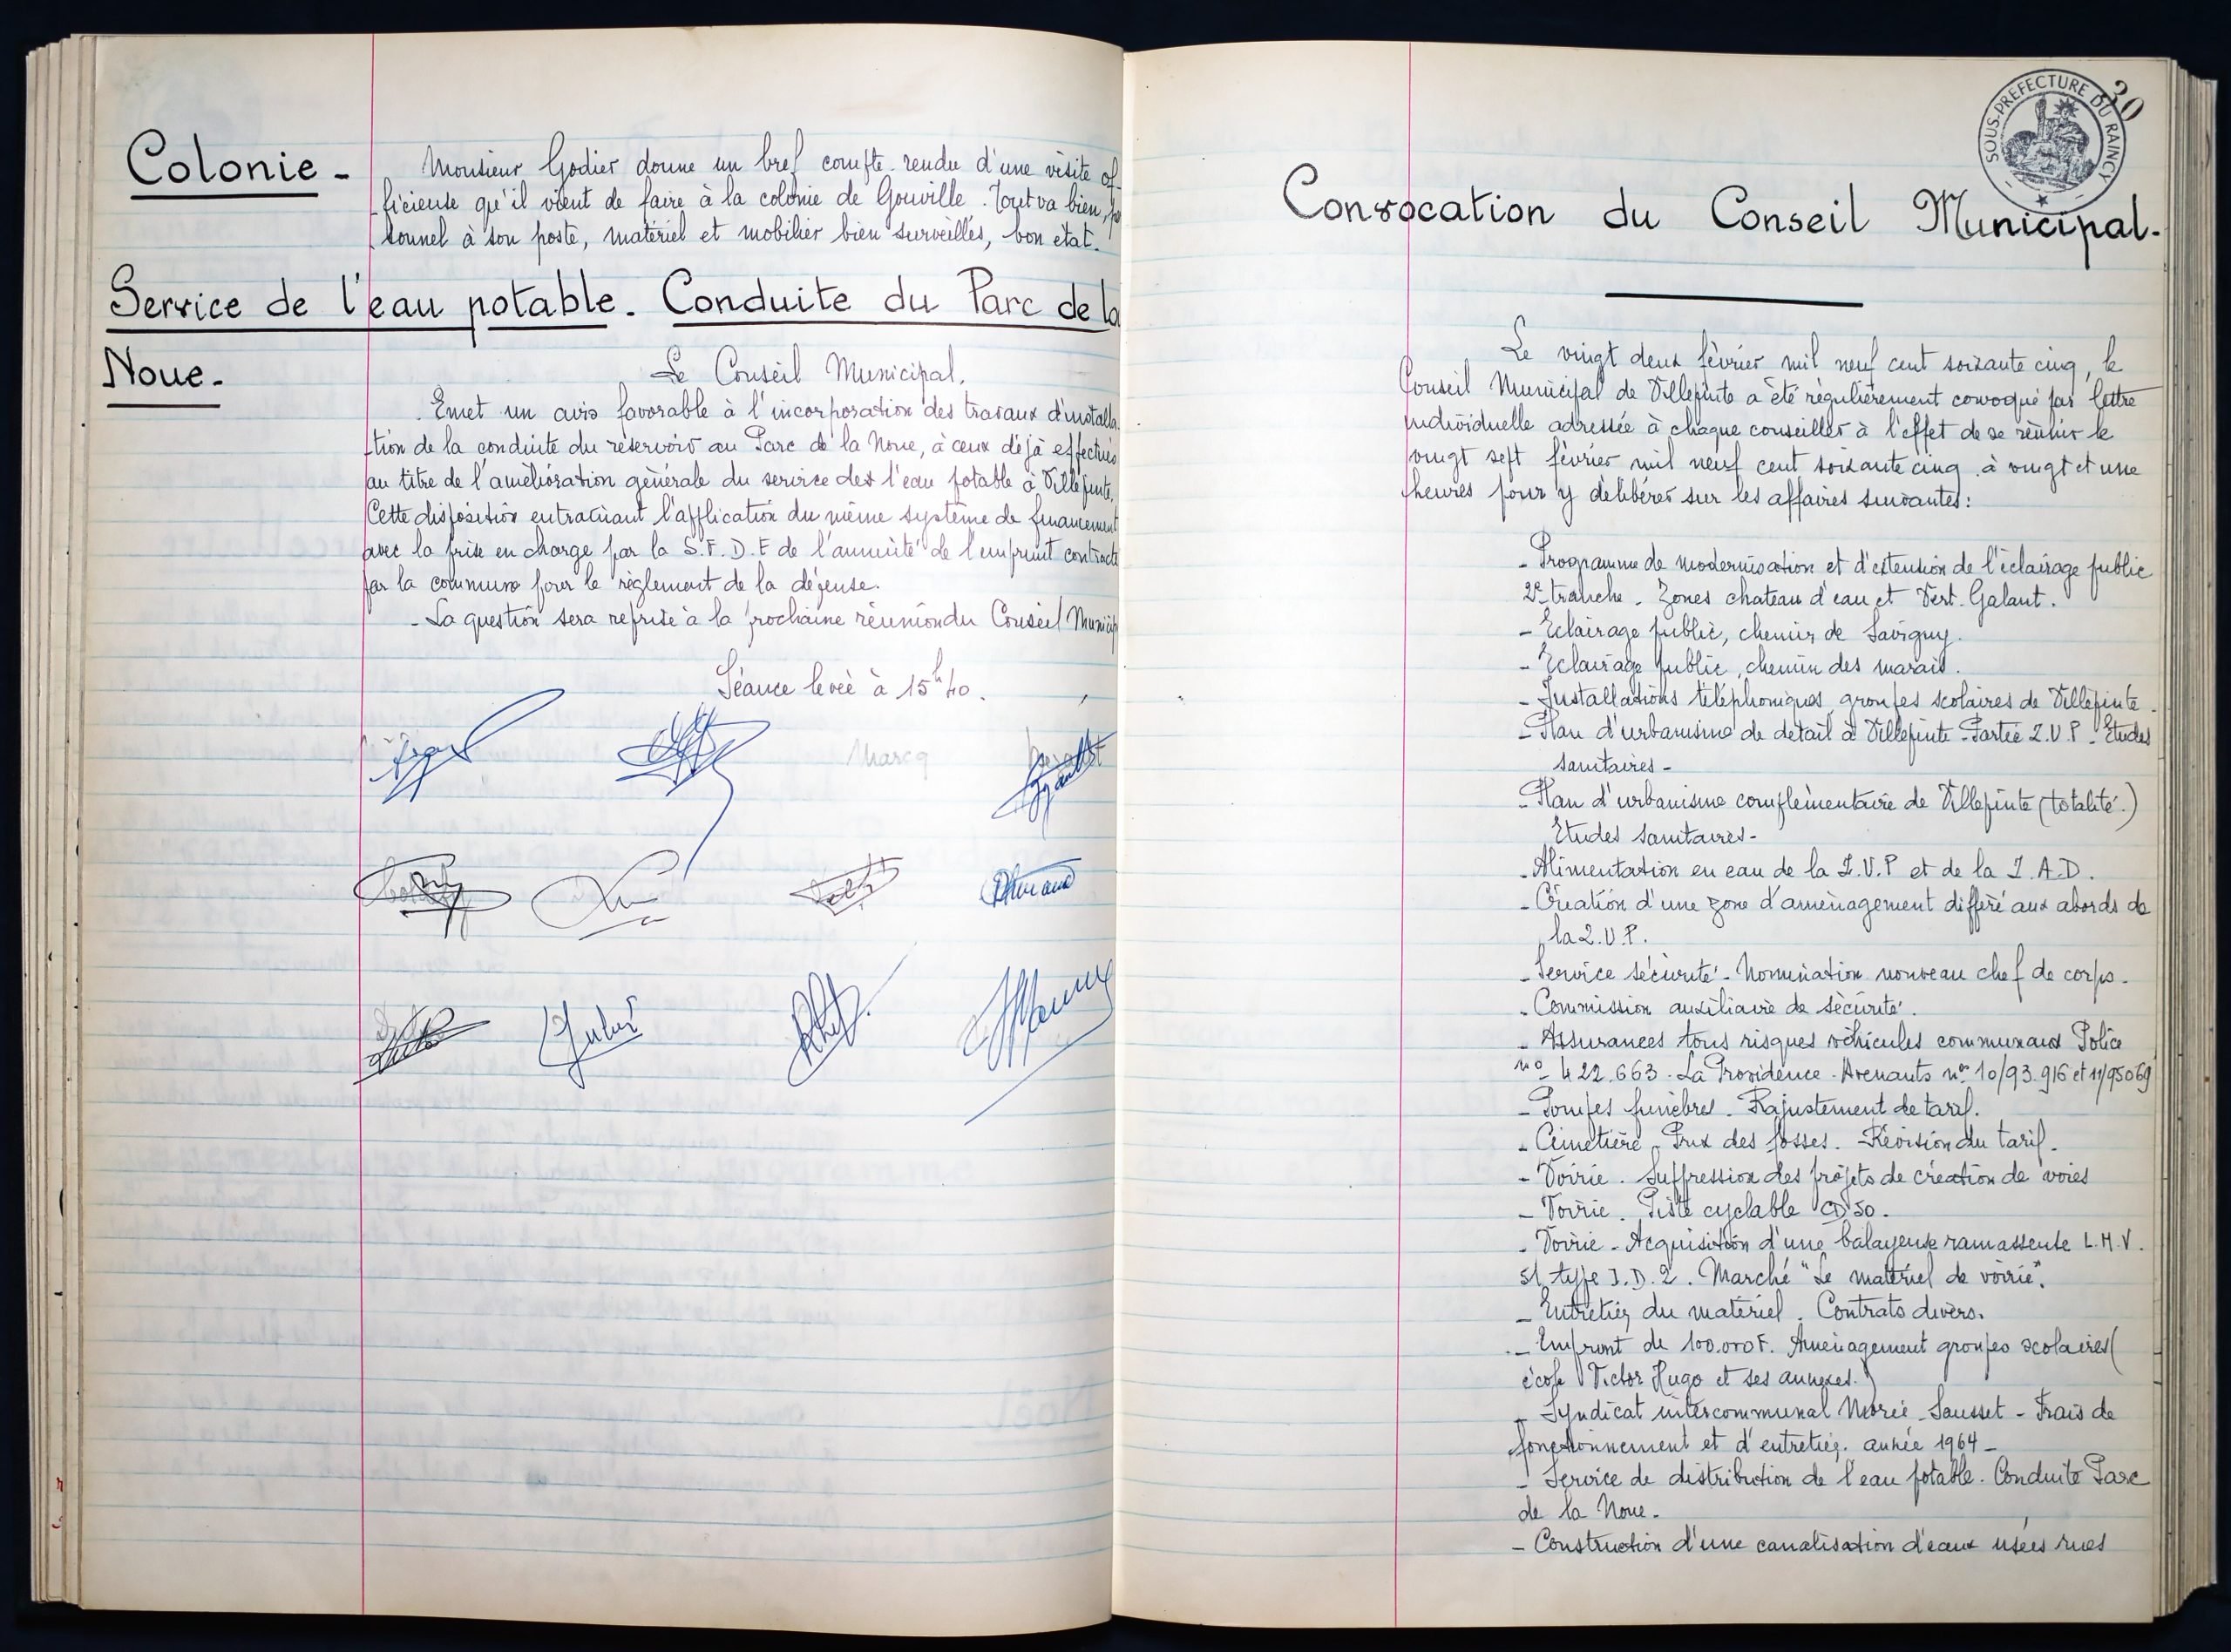 Colonie -
Monsieur Godier donne un bref compte-rendu d'une visite of-
ficieuse qu'il vient de faire à la colonie de Gouville. Tout va bien, per
sonnel à son poste, matériel et mobilier bien surveillés, bon état.
Service de l'eau potable. Conduite du Parc de la
Noue.
Le Conseil Municipal,
Emet un avis favorable à l'incorporation des travaux d'installa
tion de la conduite du réservoir au Parc de la Noue, à ceux déjà effectués
au titre de l'amélioration générale du service des l'eau potable à Villepinte.
Cette disposition entrainant l'application du même système de financement
avec la prise en charge par la S.F.D.E de l'annuité de l'emprunt contracté
par la commune pour le règlement de la dépense.
- La question sera reprise à la prochaine réunion du Conseil Municip
Séance levée à 15h40.
Marcq
SOUS-PREFECTURE DU RAINCY
30
Convocation du Conseil Municipal.
Le vingt deux février mil neuf cent soixante cinq, le
Conseil Municipal de Villepinte a été régulièrement convoqué par lettre
individuelle adressée à chaque conseiller à l'effet de se réunir le
vingt sept février mil neuf cent soixante cinq à vingt et une
heures pour y délibérer sur les affaires suivantes:
- Programme de modernisation et d'extension de l'éclairage public
2e tranche - Zones chateau d'eau et Vert-Galant.
- Eclairage public, chemin de Savigny.
- Eclairage public, chemin des marais.
- Installations téléphoniques groupes scolaires de Villepinte.
- Plan d'urbanisme de détail à Villepinte - Partie Z.U.P - Etudes
sanitaires -
- Plan d'urbanisme complémentaire de Villepinte (totalité.)
Etudes sanitaires -
- Alimentation en eau de la Z.U.P et de la Z.A.D.
- Création d'une zone d'aménagement différé aux abords de
la Z.U.P.
- Service sécurité - Nomination nouveau chef de corps.
- Commission auxiliaire de sécurité.
- Assurances tous risques véhicules communaux Police
no 422.663. La Providence. Avenants nos 10/93.916 et 11/95069
- Pompes funèbres - Rajustement de tarif.
- Cimetière - Prix des fosses. - Révision du tarif.
- Voirie. Suppression des projets de création de voies
- Voirie. Piste cyclable CD 50.
- Voirie - Acquisition d'une balayeuse ramasseuse L.M.V.
S1 type I.D.2. Marché "Le matériel de voirie".
- Entretien du matériel. Contrats divers.
- Emprunt de 100.000 F. Aménagement groupes scolaires(
école Victor Hugo et ses annexes.)
- Syndicat intercommunal Morée - Sausset - Frais de
fonctionnement et d'entretien. année 1964 -
- Service de distribution de l'eau potable. Conduite Parc
de la Noue.
- Construction d'une canalisation d'eaux usées rues